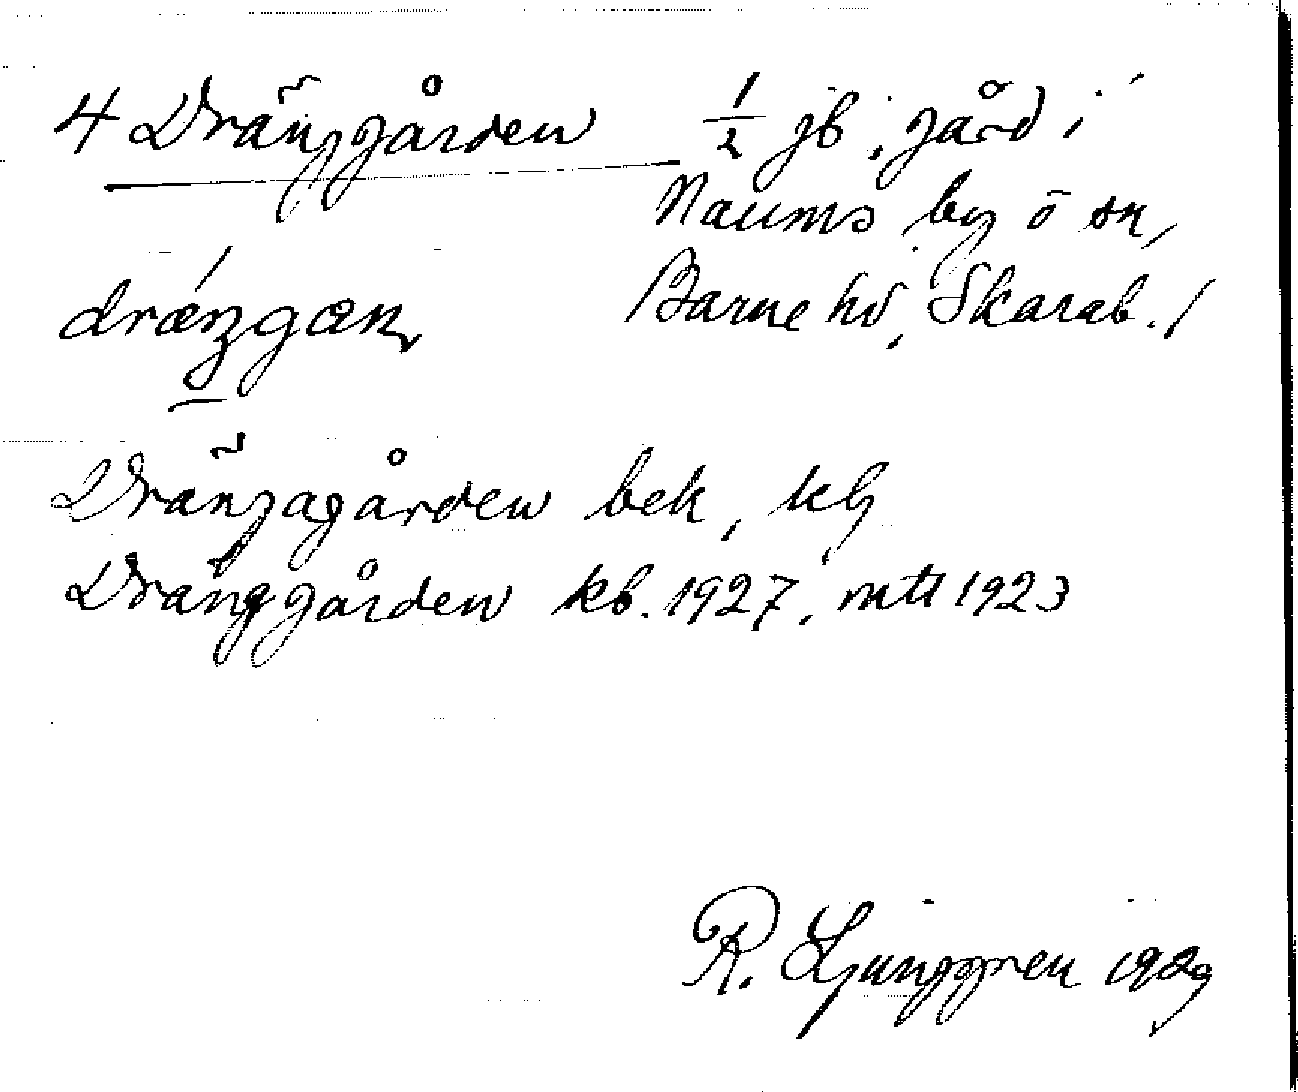 4 Dränggården 1/2 jb, gård i
Naums by o sn,
Barne hd, Skarab. /
Drängagården bek, kbg
Dränggården kb. 1927. mtl 1923
R. Ljunggren 1929